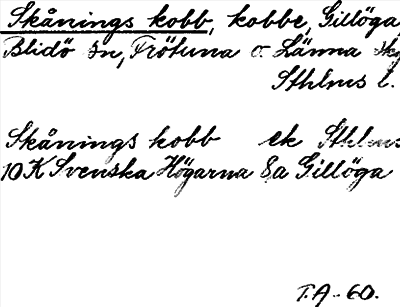 Skånings kobb, kobbe, Gillöga,
Blidö sn, Frötuna o. Länna skg
Sthlms l.
Skånings kobb ek Sthlms
10K Svenska Högarna 8a Gillöga
T.A-60.